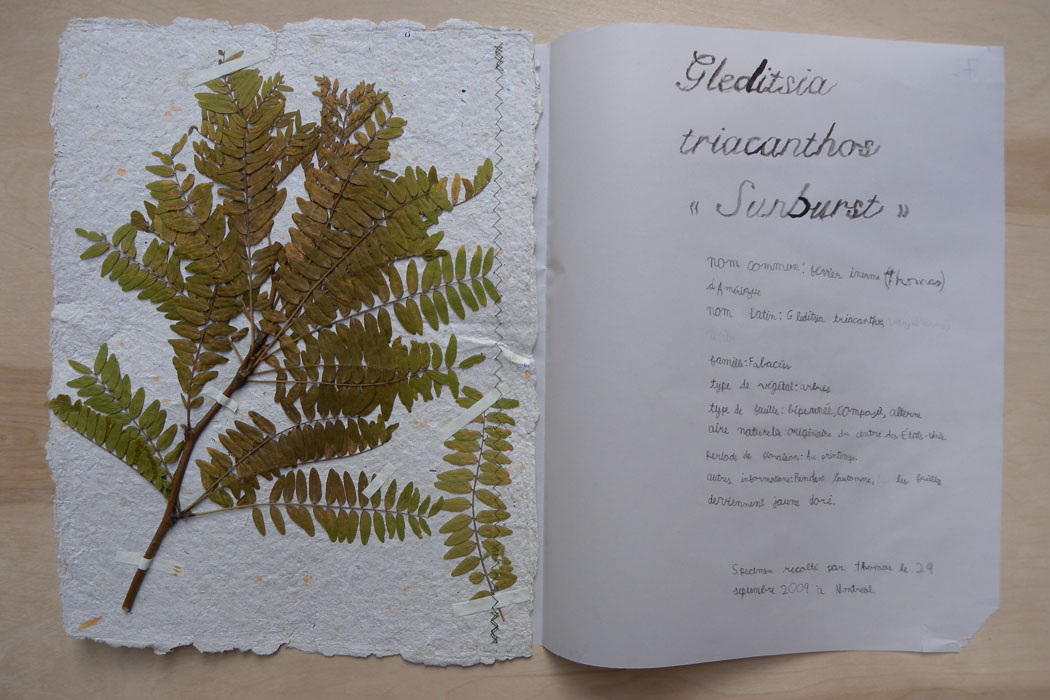 Gleditsia
triacanthos
« Sunburst »
nom commun: févier inerme (thomas)
d'Amérique
nom latin: Gleditsa triacanthos
famille: Fabacées
type de végétal: arbres
type de feuille: bipennée, composé, alterne
aire naturelle: originaire du centre des États-Unis
Période de floraison: Au printemps
autres informations: Pendant l'automne, les feuilles
deviennent jaune doré.
Specimen recolté par thomas le 29
septembre 2009 à Montréal